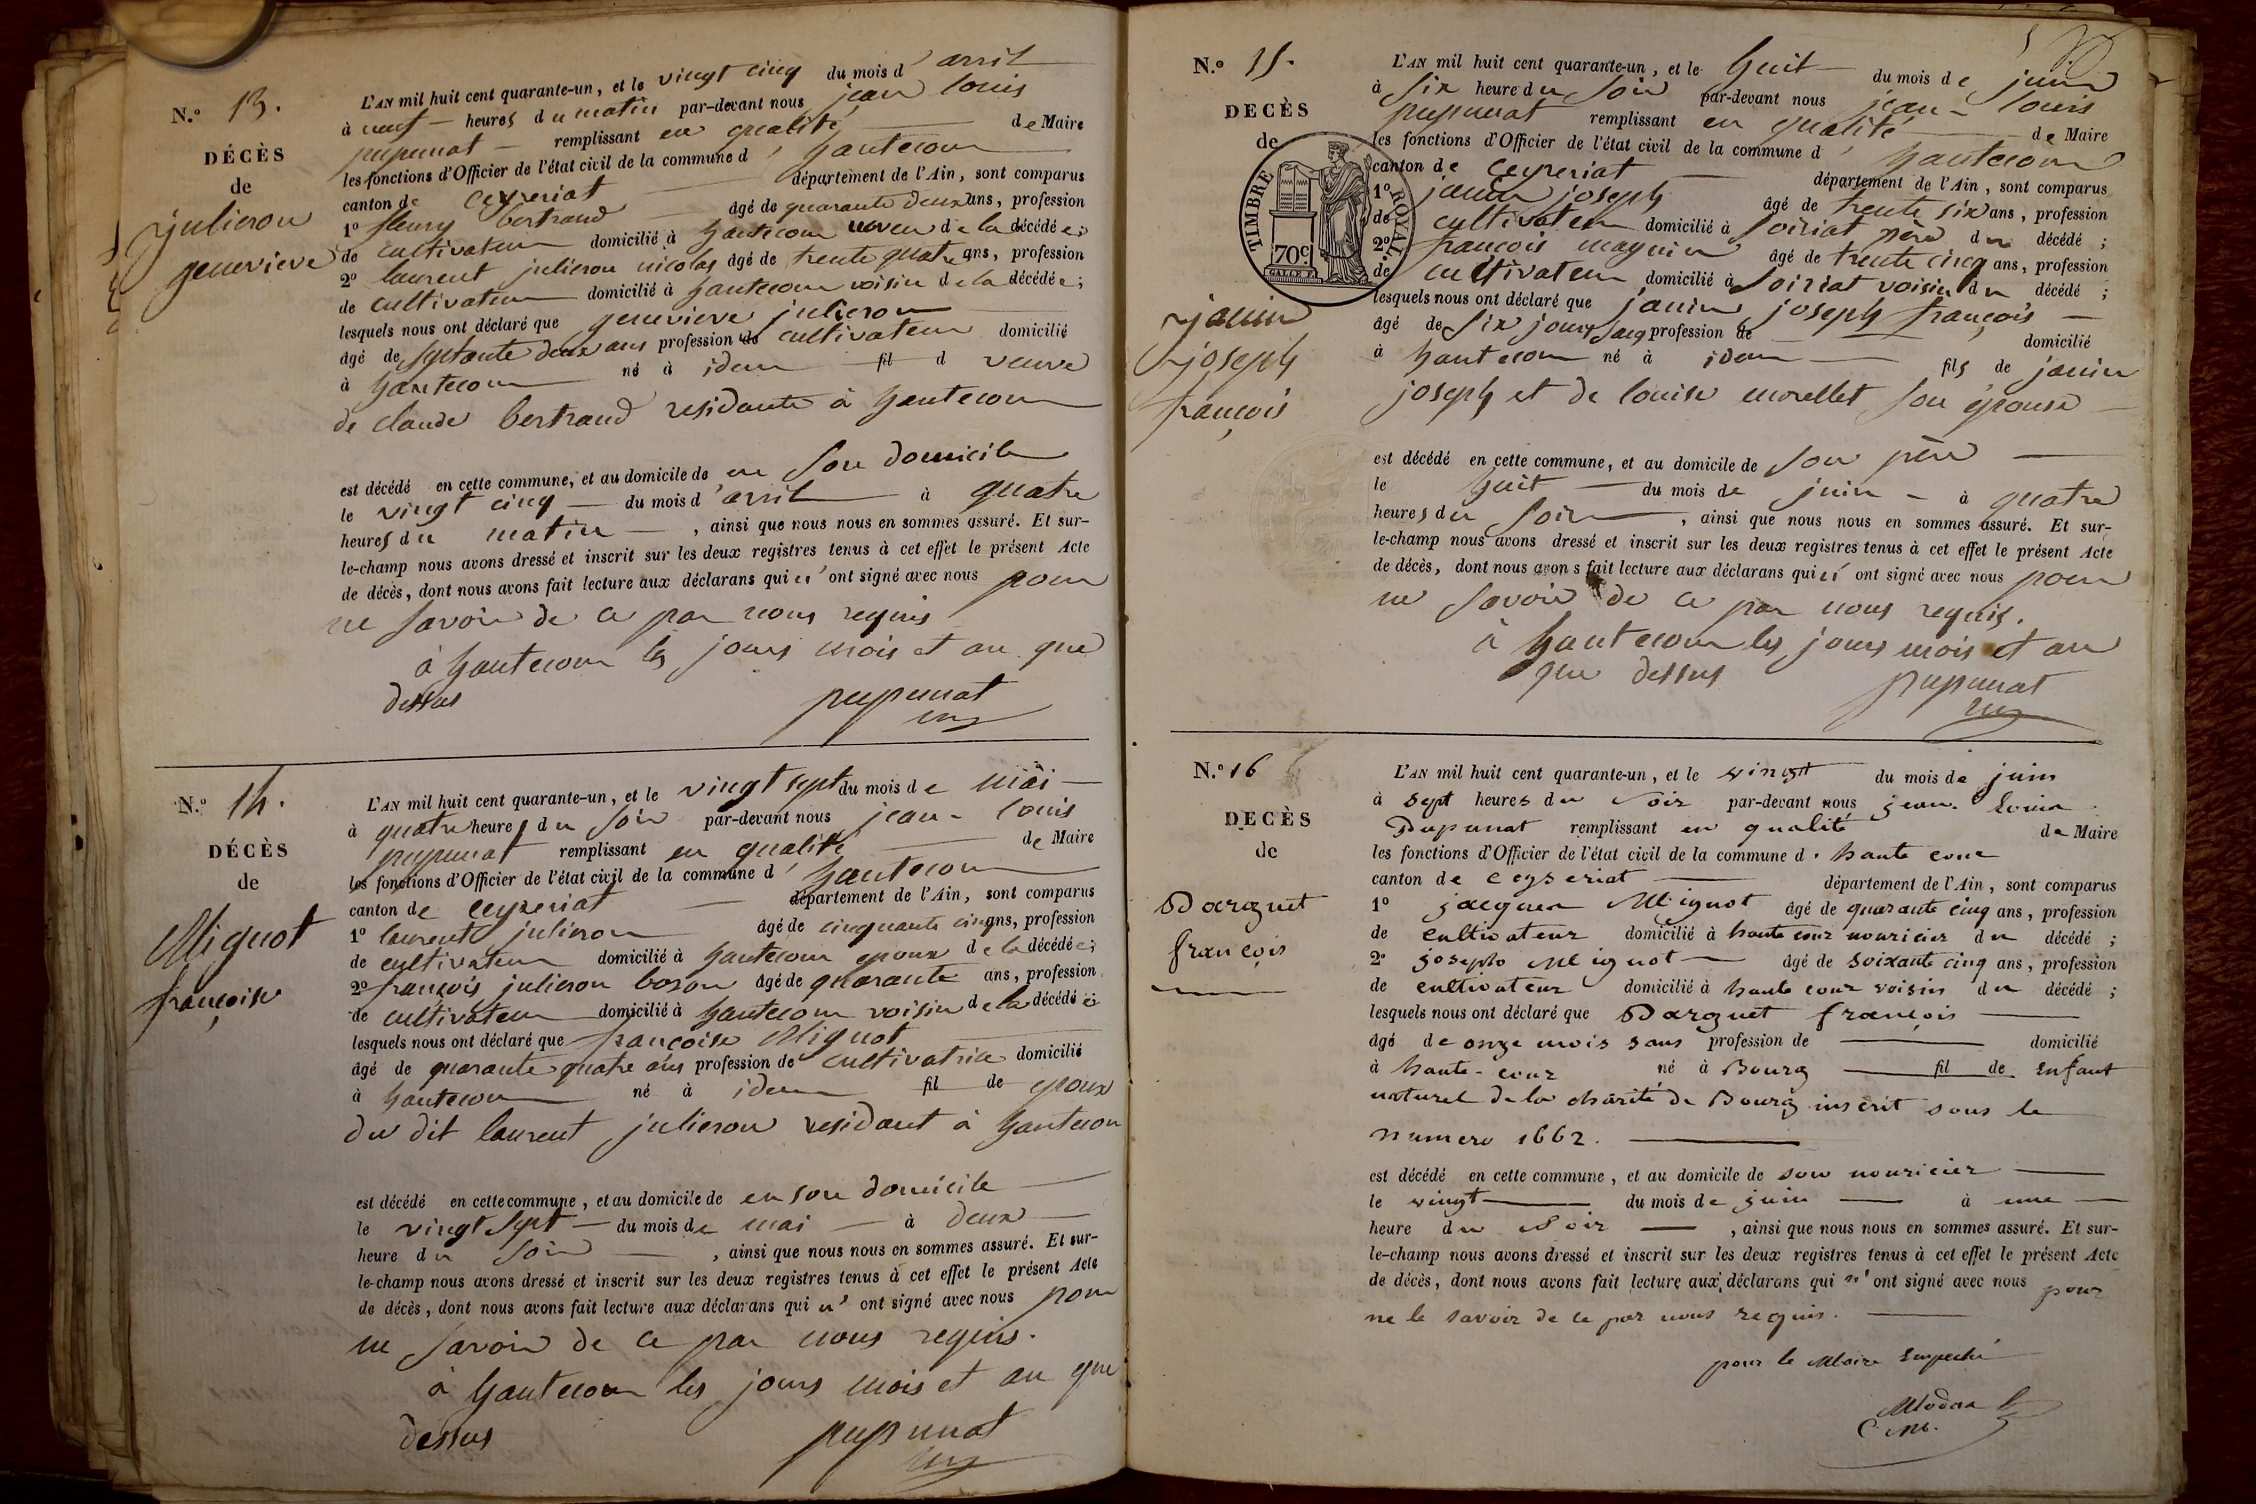 N.º 13.
DÉCÈS
de
julieron
genevieve
L'AN mil huit cent quarante-un, et le vingt cinq du mois d'avril
à neuf heures du matin par-devant nous jean louis
pupunat remplissant en qualité de Maire
les fonctions d'Officier de l'état civil de la commune d'hautecour
canton de ceyzeriat département de l'Ain, sont comparus
1º fleury bertrand âgé de quarante deux ans, profession
de cultivateur domicilié à hautecour neveu de la décédée;
2º laurent julieron nicolas âgé de trente quatre ans, profession
de cultivateur domicilié à hautecour voisin de la décédée;
lesquels nous ont déclaré que genevieve julieron
âgé de septante deux ans profession de cultivateur domicilié
à hautecour né à idem fil d veuve
de claude bertrand residante à hautecour
est décédé en cette commune, et au domicile de en son domicile
le vingt cinq du mois d'avril à quatre
heures du matin, ainsi que nous nous en sommes assuré. Et sur-
le-champ nous avons dressé et inscrit sur les deux registres tenus à cet effet le présent Acte
de décès, dont nous avons fait lecture aux déclarans qui n'ont signé avec nous pour
ne savoir de ce par nous requis
à hautecour les jours mois et an que
dessus pupunat
N.º 14.
DÉCÈS
de
Mignot
françoise
L'AN mil huit cent quarante-un, et le vingt sept du mois de mai
à quatre heures du soir par-devant nous jean-louis
pupunat remplissant en qualité de Maire
les fonctions d'Officier de l'état civil de la commune d'hautecour
canton de ceyzeriat département de l'Ain, sont comparus
1º laurent julieron âgé de cinquante cinq ans, profession
de cultivateur domicilié à hautecour epoux de la décédée;
2º françois julieron boson âgé de quarante ans, profession
de cultivateur domicilié à hautecour voisin de la décédée
lesquels nous ont déclaré que françoise Mignot
âgé de quarante quatre ans profession de cultivatrice domicilié
à hautecour né à idem fil de epoux
du dit laurent julieron residant à hautecour
est décédé en cette commune, et au domicile de en son domicile
le vingt sept du mois de mai à deux
heure du soir, ainsi que nous nous en sommes assuré. Et sur-
le-champ nous avons dressé et inscrit sur les deux registres tenus à cet effet le présent Acte
de décès, dont nous avons fait lecture aux déclarans qui n'ont signé avec nous pour
ne savoir de ce par nous requis.
à hautecour les jours mois et an que
dessus pupunat
N.º 15.
DECÈS
de
TIMBRE ROYAL.
70c.
janin
joseph
françois
L'AN mil huit cent quarante-un, et le huit du mois de juin
à six heure du soir par-devant nous jean-louis
pupunat remplissant en qualité de Maire
les fonctions d'Officier de l'état civil de la commune d'hautecour
canton de ceyzeriat département de l'Ain, sont comparus
1º janin joseph âgé de trente six ans, profession
de cultivateur domicilié à soiriat père du décédé;
2º françois magnin âgé de trente cinq ans, profession
de cultivateur domicilié à soiriat voisin du décédé;
lesquels nous ont déclaré que janin joseph françois
âgé de six jours sans profession de domicilié
à hautecour né à idem fils de janin
joseph et de louise morellet son épouse
est décédé en cette commune, et au domicile de son père
le huit du mois de juin à quatre
heures du soir, ainsi que nous nous en sommes assuré. Et sur-
le-champ nous avons dressé et inscrit sur les deux registres tenus à cet effet le présent Acte
de décès, dont nous avons fait lecture aux déclarans qui n'ont signé avec nous pour
ne savoir de ce par nous requis.
à hautecour les jours mois et an
que dessus pupunat
N.º 16
DECÈS
de
Darguet
françois
L'AN mil huit cent quarante-un, et le vingt du mois de juin
à sept heures du soir par-devant nous jean-Louis
Pupunat remplissant en qualité de Maire
les fonctions d'Officier de l'état civil de la commune d'haute cour
canton de ceyzeriat département de l'Ain, sont comparus
1º jacques Mignot âgé de quarante cinq ans, profession
de cultivateur domicilié à haute cour nouricier du décédé;
2º joseph Mignot âgé de soixante cinq ans, profession
de cultivateur domicilié à haute cour voisin du décédé;
lesquels nous ont déclaré que Darguet françois
âgé de onze mois sans profession de domicilié
à haute-cour né à Bourg fil de Enfant
naturel de la charité de Bourg inscrit sous le
numero 1662.
est décédé en cette commune, et au domicile de son nouricier
le vingt du mois de juin à une
heure du soir, ainsi que nous nous en sommes assuré. Et sur-
le-champ nous avons dressé et inscrit sur les deux registres tenus à cet effet le présent Acte
de décès, dont nous avons fait lecture aux déclarans qui n'ont signé avec nous pour
ne le savoir de ce par nous requis.
pour le Maire Empeché
C M.